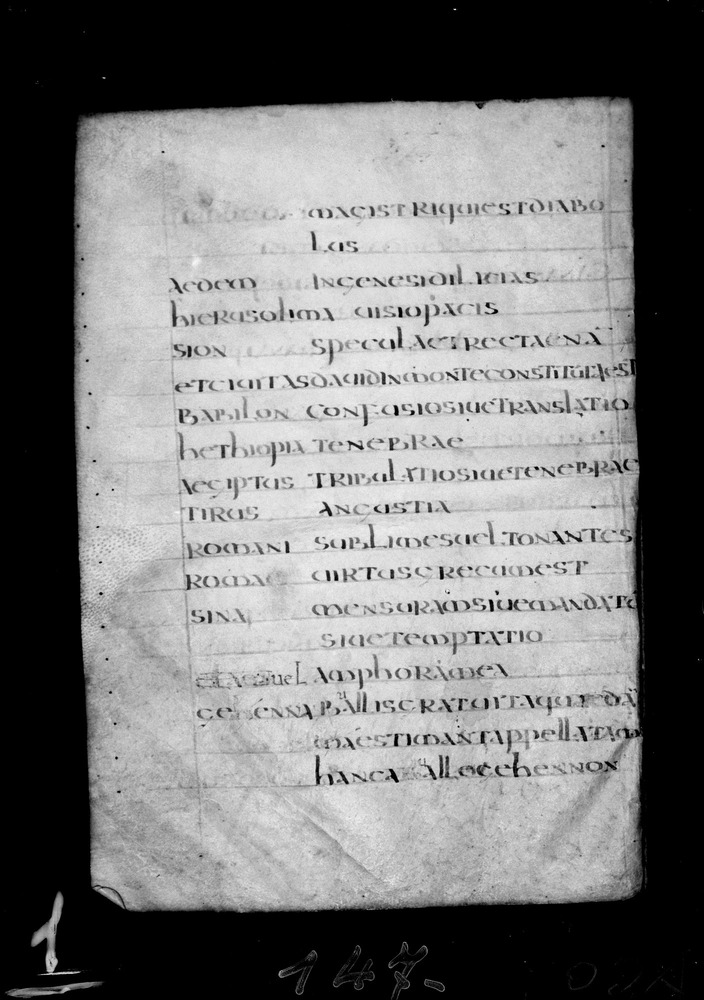 magistri qui est diabo
lus
aedem in genesi dil icias
hierusolima uisio pacis
sion specula et recta ena
et ciuitas dauid in monte constituta est
babilon confusio siue translatio
hethiopia tenebrae
aegiptus tribulatio siue tenebrae
tirus angustia
romani sublimes uel tonantes
romae uirtus grecum est
sina mensuram siue mandato
siue temptatio
amphora mea
gehenna ballis gratuita queda
maestimant appellatam
hanc a alle gehennon
1
147-